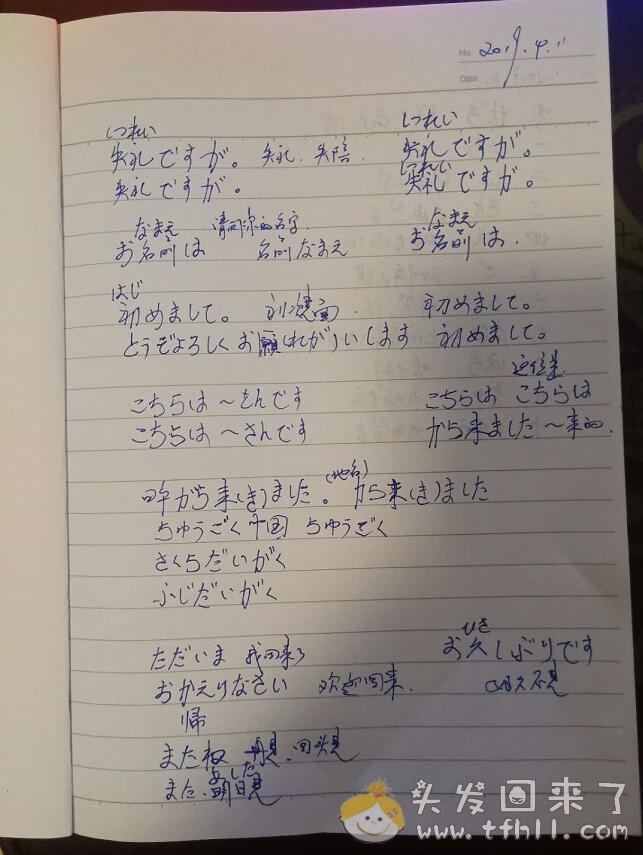 No. 2019.4.11
Date
しつれい しつれい
失礼ですが。 失礼. 失陪. 失礼ですが。
しつれい
失礼ですが。 失礼ですが。
なまえ 请问你的名字 なまえ
お名前は 名前なまえ お名前は.
はじ
初めまして。 初次见面. 初めまして。
どうぞよろしくお願(ねが)いします 初めまして。
这位是
こちらは～さんです こちらは こちらは
こちらは～さんです から来ました～来的.
(地名)
から来(き)ました。 から来(き)ました
ちゅうごく 中国 ちゅうごく
さくらだいがく
ふじだいがく
ひさ
ただいま 我回来了 お久しぶりです
おかえりなさい 欢迎回来. 好久不见
帰
またね 再见.回头见
あした
また、明日見
头发回来了
www.tfhll.com